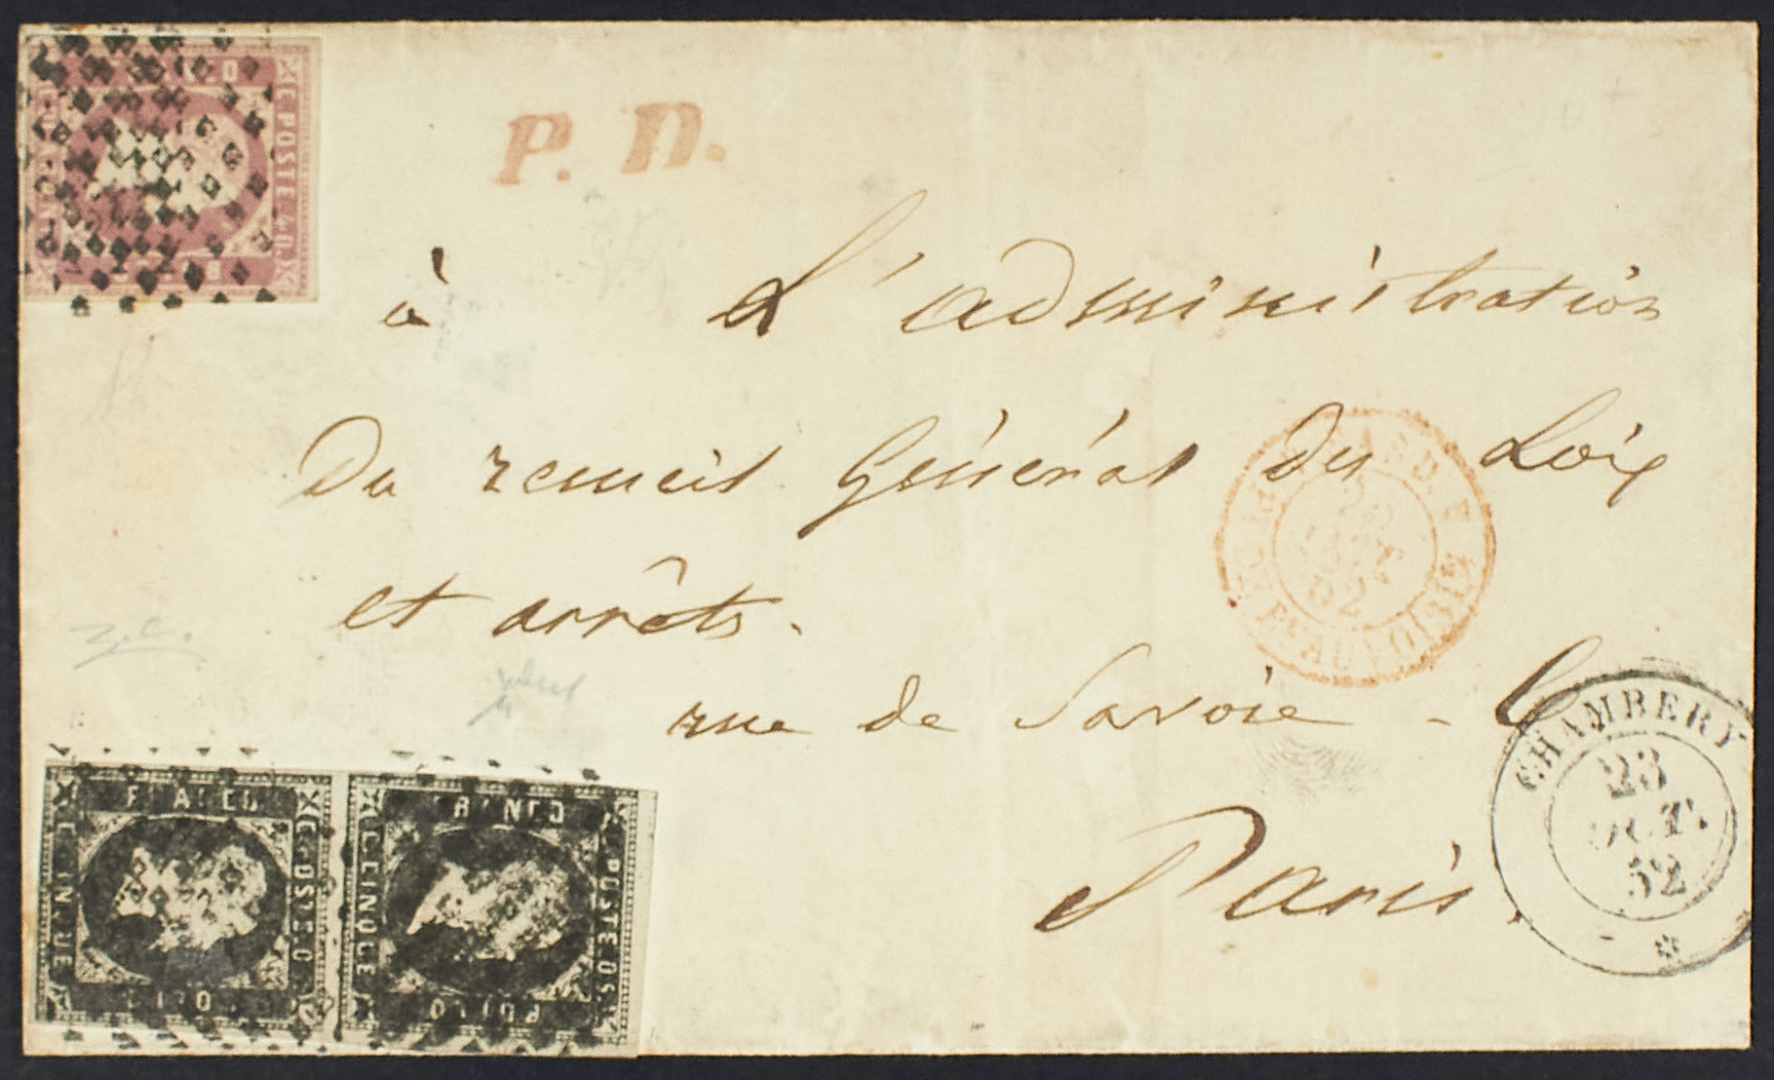 P. D.
à L'administration
Du recueil Général des Loix
et arrêts.
rue de Savoie - 6
Paris.
CHAMBERY
23
OCT.
52
PT BEAUVOISIN
OCT
52
FRANCO
C. POSTE 40.
FRANCO
C. CINQUE
C. POSTE 5 C.
FRANCO
C. CINQUE
C. POSTE 5.